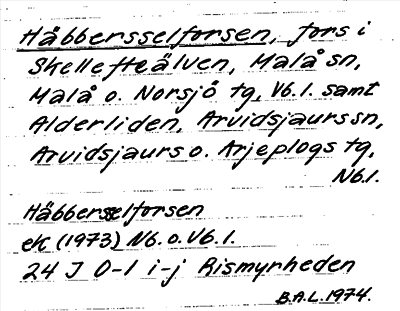 Häbbersselforsen, fors i
Skellefteälven, Malå sn,
Malå o. Norsjö tg, Vb.l. samt
Alderliden, Arvidsjaurs sn,
Arvidsjaurs o. Arjeplogs tg,
Nb.l.
Häbbersselforsen
ek (1973) Nb. o. Vb.l.
24 J 0-1 i-j Rismyrheden
B.A.L. 1974.